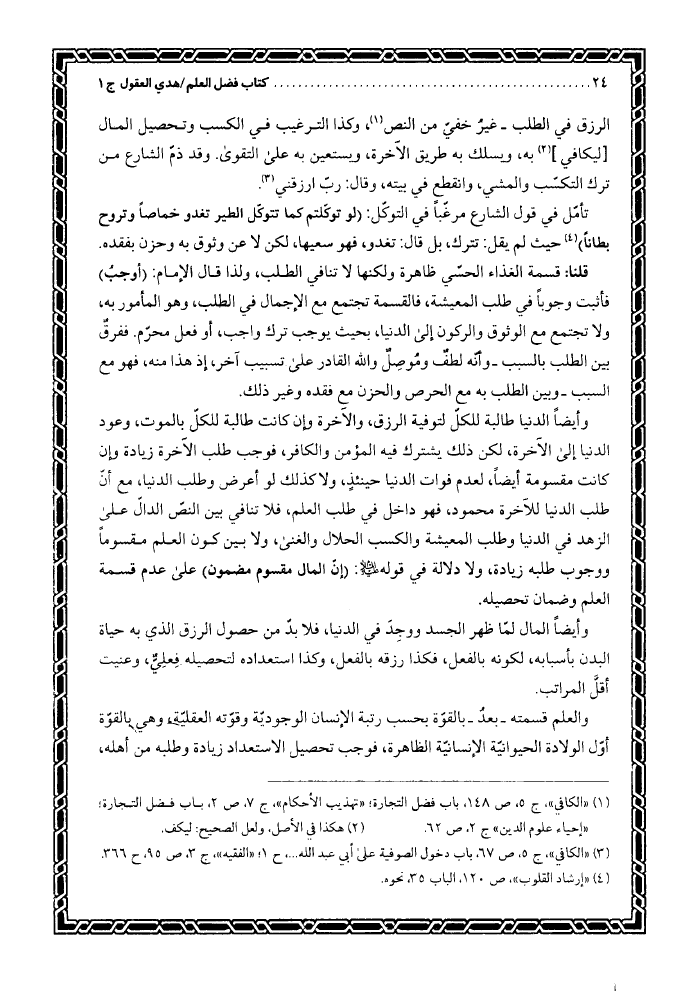 ٢٤ ..................................................... كتاب فضل العلم/هدي العقول ج ١
الرزق في الطلب ـ غيرُ خفيّ من النص(١)، وكذا الترغيب في الكسب وتحصيل المال
[ليكافي](٢) به، ويسلك به طريق الآخرة، ويستعين به علىٰ التقوىٰ. وقد ذمّ الشارع من
ترك التكسّب والمشي، وانقطع في بيته، وقال: ربّ ارزقني(٣).
تأمّل في قول الشارع مرغّباً في التوكّل: (لو توكّلتم كما تتوكّل الطير تغدو خماصاً وتروح
بطاناً)(٤) حيث لم يقل: تترك، بل قال: تغدو، فهو سعيها، لكن لا عن وثوق به وحزن بفقده.
قلنا: قسمة الغذاء الحسّي ظاهرة ولكنها لا تنافي الطلب، ولذا قال الإمام: (أوجبُ)
فأثبت وجوباً في طلب المعيشة، فالقسمة تجتمع مع الإجمال في الطلب، وهو المأمور به،
ولا تجتمع مع الوثوق والركون إلىٰ الدنيا، بحيث يوجب ترك واجب، أو فعل محرّم. ففرقٌ
بين الطلب بالسبب ـ وأنّه لطفٌ ومُوصِلٌ والله القادر علىٰ تسبيب آخر، إذ هذا منه، فهو مع
السبب ـ وبين الطلب به مع الحرص والحزن مع فقده وغير ذلك.
وأيضاً الدنيا طالبة للكلّ لتوفية الرزق، والآخرة وإن كانت طالبة للكلّ بالموت، وعود
الدنيا إلىٰ الآخرة، لكن ذلك يشترك فيه المؤمن والكافر، فوجب طلب الآخرة زيادة وإن
كانت مقسومة أيضاً، لعدم فوات الدنيا حينئذٍ، ولا كذلك لو أعرض وطلب الدنيا، مع أنّ
طلب الدنيا للآخرة محمود، فهو داخل في طلب العلم، فلا تنافي بين النصّ الدالّ علىٰ
الزهد في الدنيا وطلب المعيشة والكسب الحلال والغنىٰ، ولا بين كون العلم مقسوماً
ووجوب طلبه زيادة، ولا دلالة في قوله: (إنّ المال مقسوم مضمون) علىٰ عدم قسمة
العلم وضمان تحصيله.
وأيضاً المال لمّا ظهر الجسد ووجِدَ في الدنيا، فلا بدّ من حصول الرزق الذي به حياة
البدن بأسبابه، لكونه بالفعل، فكذا رزقه بالفعل، وكذا استعداده لتحصيله فِعليٌّ، وعنيت
أقلَّ المراتب.
والعلم قسمته ـ بعدُ ـ بالقوّة بحسب رتبة الإنسان الوجوديّة وقوّته العقليّة، وهي بالقوّة
أوّل الولادة الحيوانيّة الإنسانيّة الظاهرة، فوجب تحصيل الاستعداد زيادة وطلبه من أهله،
(١) «الكافي»، ج ٥، ص ١٤٨، باب فضل التجارة؛ «تهذيب الأحكام»، ج ٧، ص ٢، باب فضل التجارة؛
«إحياء علوم الدين» ج ٢، ص ٦٢. (٢) هكذا في الأصل، ولعل الصحيح: ليكف.
(٣) «الكافي»، ج ٥، ص ٦٧، باب دخول الصوفية علىٰ أبي عبد الله...، ح ١؛ «الفقيه»، ج ٣، ص ٩٥، ح ٣٦٦.
(٤) «إرشاد القلوب»، ص ١٢٠، الباب ٣٥، نحوه.